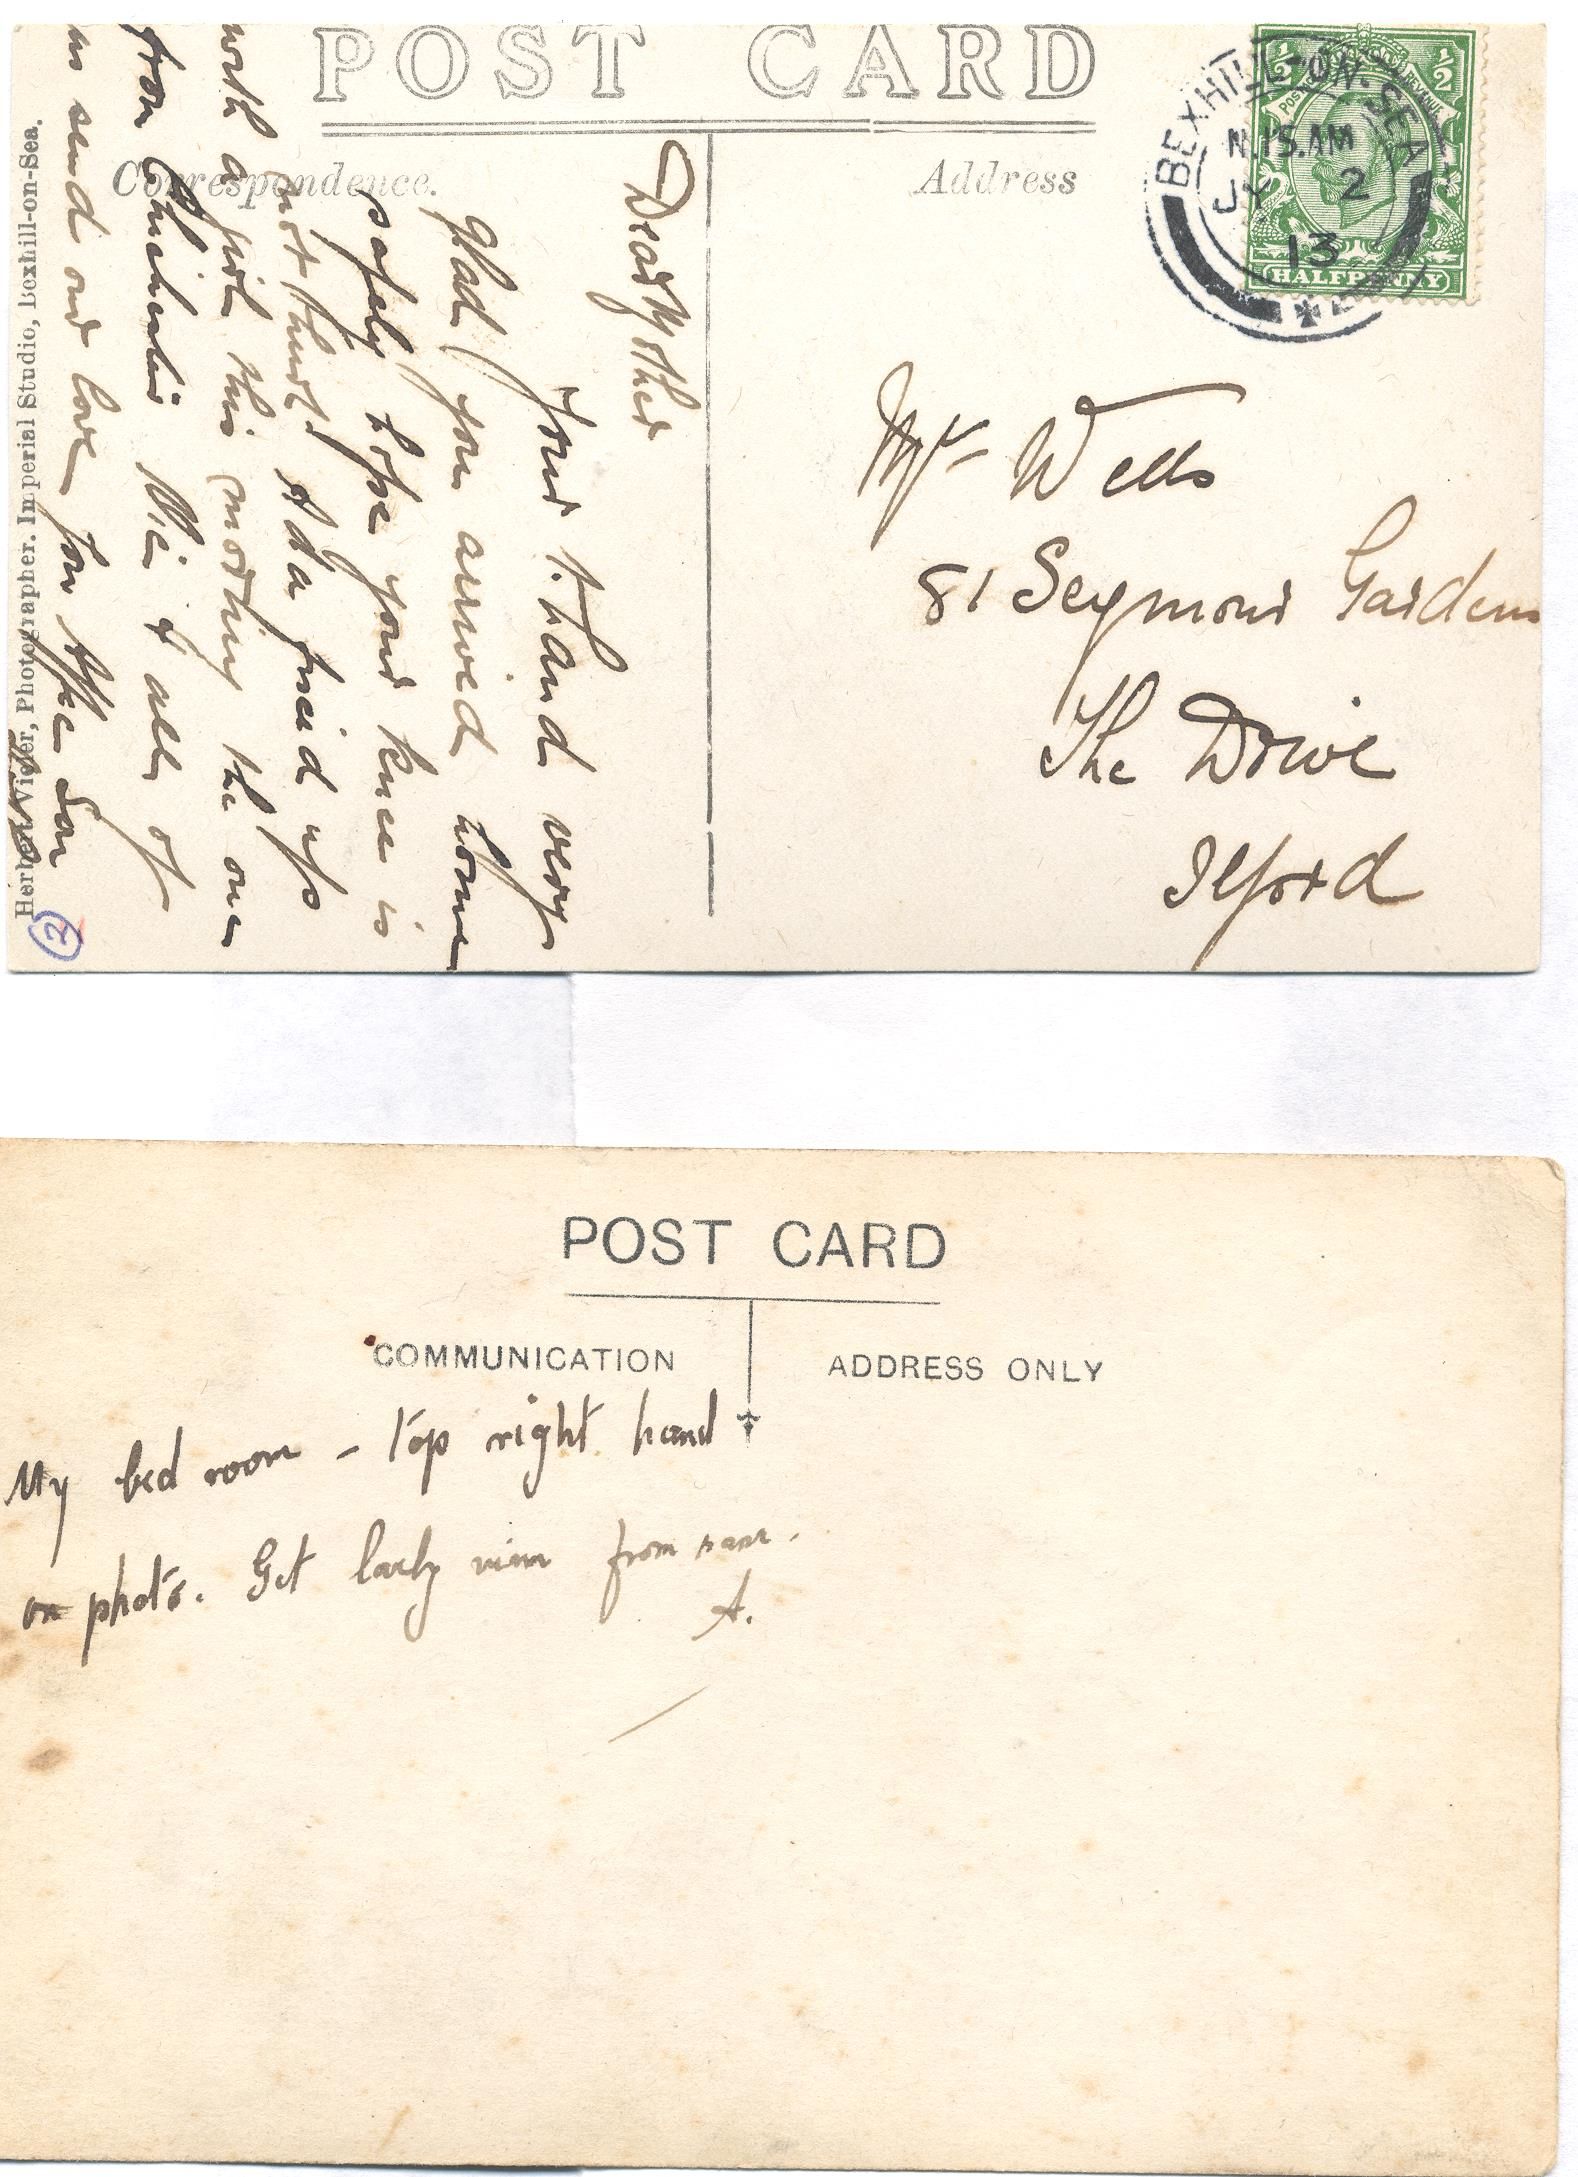 POST CARD
Correspondence.
Address
BEXHILL-ON-SEA
11.15.AM
JY 2
13
½ ½
POSTAGE REVENUE
HALFPENNY
Dear Mother
Your t. hand very
glad you arrived home
safely hope your knee is
not hurt Ada fried up
with a girl this morning the one
from Chichester & all of
us send our love Your Affec Son
Mrs Wells
81 Seymour Gardens
The Drive
Ilford
Herbert Vieler, Photographer. Imperial Studio, Bexhill-on-Sea.
2
POST CARD
COMMUNICATION
ADDRESS ONLY
My bed room - top right hand
on photo. Get lovely view from rear.
A.